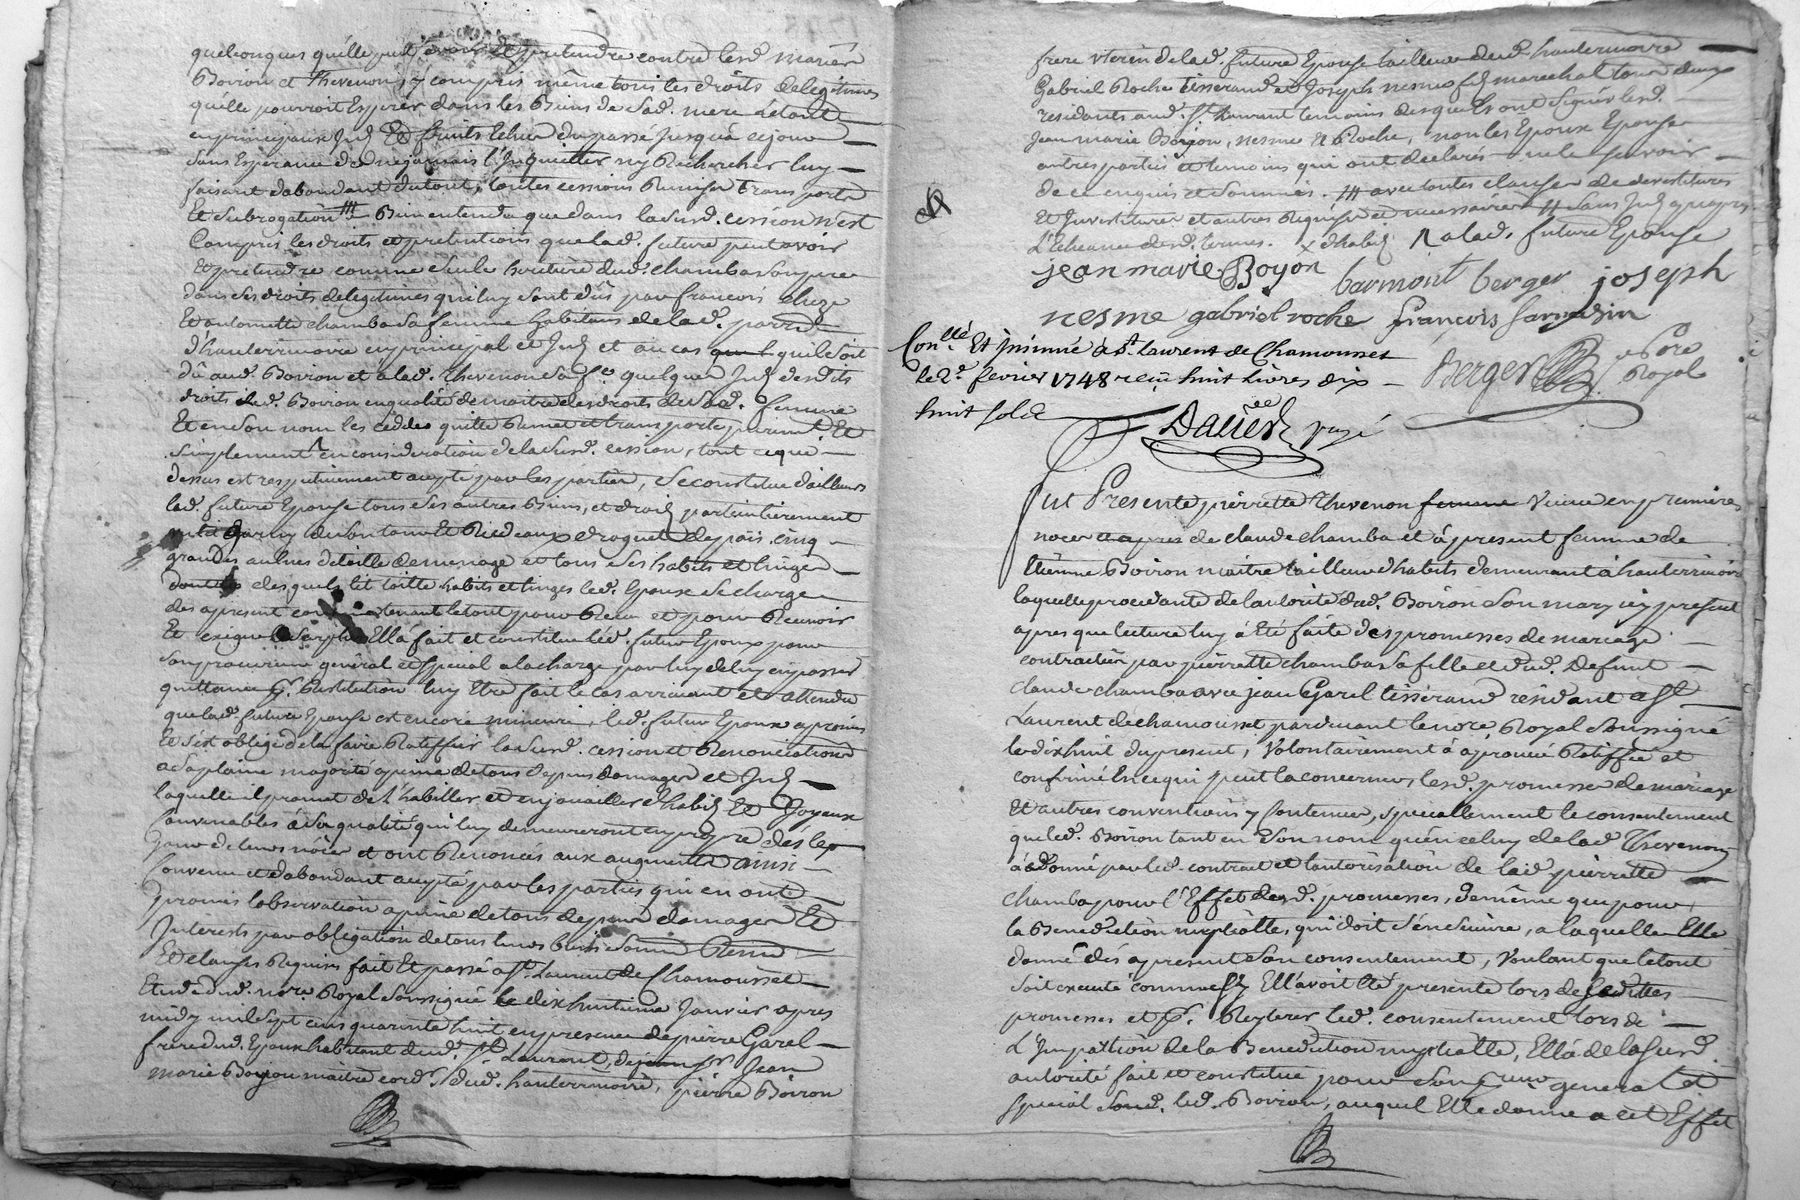 quelconques qu'elle peut avoir et pretendre contre lesd. mariés
Boiron et Thevenon, y compris même tous les droits de legitimes
qu'elle pourroit Esperer dans les Biens de sad. mere Létout
en principaux Jnd. Et fruits Echus du passé jusqu'à ce jour
sans Esperance de ne jamais l'Jnquietter ny Rechercher luy
faisant dabondant du tout, toutes cessions Remises transports
Et subrogation /// Bien entendu que dans lasusd. cession n'est
Compris les droits et pretentions que lad. future peut avoir
Et pretendre comme seule heritiere dud. chamba son pere
dans ses droits de legitimes qui luy sont dûs par françois cheze
Et antoinette chamba sa femme habitans de lad. parr.
d'hauterimoire en principal et Jnd. et au cas qu'il soit
dû aud. Boiron et à lad. Thevenon sa fe. quelques Jnd. desdits
droits led. Boiron en qualité de maitre des droits de sad. femme
Et en son nom les cedde quitte Remet et transporte purement Et
simplement en consideration de lasusd. cession, tout ce que
dessus est respectivement accepté par les parties, se constitue d'ailleurs
lad. future Epouse tous ses autres Biens, et droits particulierement
un lit garny de son tour Et Rideaux droguet de pais cinq
grandes aulnes de toille de menage et tous ses habits et linges
desquels lit toille habits et linges led. Epoux se charge
dès apresent tenant le tout pour Reçu et pour Recevoir
Et exiger le surplus Ellá fait et constitue led. futur Epoux pour
son procureur general et special a la charge par luy de luy en passer
quittance pr. Restitution luy Etre fait le cas arrivant et attendu
que lad. future Epouse est encore mineure, led. futur Epoux a promis
Et s'est obligé de la faire Ratiffier lasusd. cession et Renonciations
a sa plaine majorité a peine de tous depens domages et Jnd.
laquelle il promet de l'habiller et enjouailler d'habits Et Joyaux
Convenables à sa qualité qui luy demeureront en propre dès le
jour de leurs nôces et ont Renoncés aux augments ainsi
Convenu et dabondant accepté par les parties qui en ont
promis l'observation a peine de tous depens domages Et
Interests par obligation de tous leurs biens soumis Renon.
Et clauses Requises fait Et passé a St. Laurent de Chamousset
Etude dud. nore. Royal soussigné le dix huitieme Janvier apres
midy mil sept cens quarante huit en presence de pierre Garel
frere dud. Epoux habitant dud. St. Laurent, de sr. Jean
marie Boyon maitre cordr. dud. hauterimoire, pierre Boiron
frere uterin de lad. future Epouse tailleur dud. hauterimoire
Gabriel Roche tisserand et Joseph nesme fils marechal tous deux
residants aud. St. Laurent temoins desquels ont signés lesd.
Jean marie Boyon, nesme et Roche, non les Epoux Epouse
autres parties et temoins qui ont declarés ne le sçavoir
de ce enquis et sommés. /// avec toutes clauses de devestitures
Et Jnvestitures et autres Requises et necessaires // sans Jnd. qu'apres
L'Echeance desd. termes. x d'habits à lad. future Epouse
jean marie Boyon barmont berger joseph
nesme gabriel roche françois
Con.llé Et Jnsinué à St. Laurent de Chamousset
le 2e. fevrier 1748 reçu huit livres dix
huit sols
Berger nore Royal
Fut Presente pierrette Thevenon femme Veuve en premieres
noces de claude chamba et à present femme de
Etienne Boiron maitre tailleur d'habits demeurant à hauterimoire
laquelle procedante de l'autorité dud. Boiron son mary icy present
apres que lecture luy à été faite des promesses de mariage
contractées par pierrette chamba sa fille et dud. Defunt
claude chamba avec jean Garel tisserand residant a St.
Laurent de chamousset pardevant le nore. Royal soussigné
le dix huit du present, Volontairement à aprouvé Ratiffié et
confirmé En ce qui peut la concerner, lesd. promesses de mariage
Et autres conventions y contenues, specialement le consentement
que led. Boiron tant en son nom qu'en celuy de lad. Thevenon
à donné par led. contrat et l'autorisation de lad. pierrette
chamba pour l'Effet desd. promesses, de même que pour
la Benediction nuptialle, qui doit s'en suivre, a laquelle Elle
donne dès apresent son consentement, Voulant que le tout
soit executé comme sy Ell'avoit Eté presente lors de sesdittes
promesses et pr. Reyterer led. consentement lors de
L'Jmpartition de la Benediction nuptialle, Ellá de lasusd.
autorité fait et constitue pour son procureur general et
special sond. led. Boiron, auquel Elle donne a cet Effet